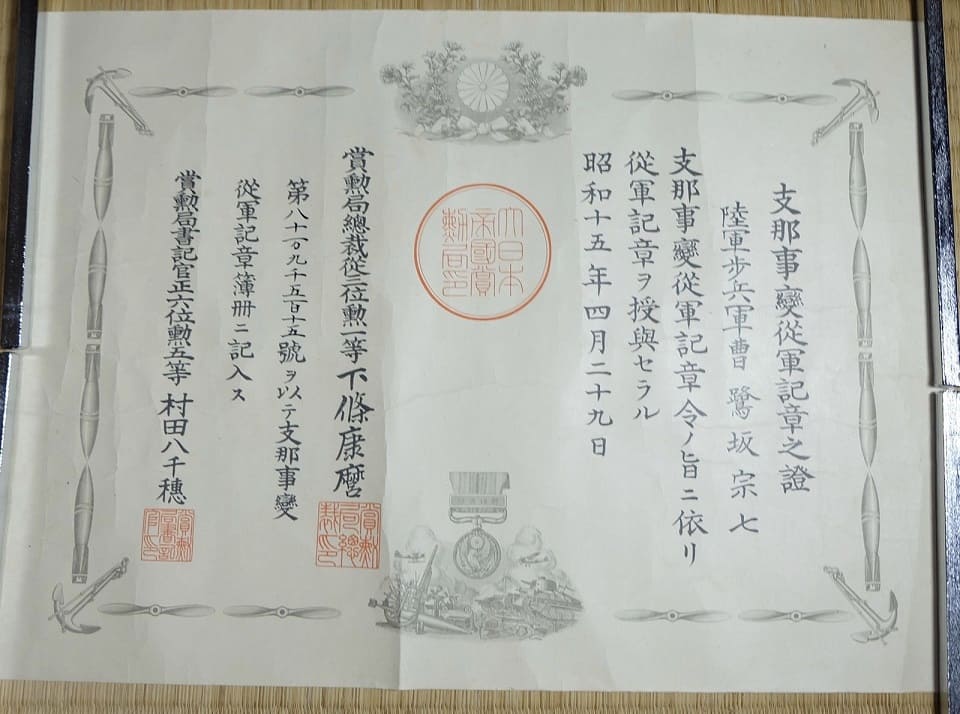 支那事變從軍記章之證
陸軍步兵軍曹 鷺坂宗七
支那事變從軍記章令ノ旨ニ依リ
從軍記章ヲ授與セラル
昭和十五年四月二十九日
大日本
帝國賞
勲局印
賞勲局總裁從三位勲一等下條康麿
賞勲局總裁印
第八十一〇九千五百十五號ヲ以テ支那事變
從軍記章簿冊ニ記入ス
賞勲局書記官正六位勲五等 村田八千穗
賞勲局書記官印